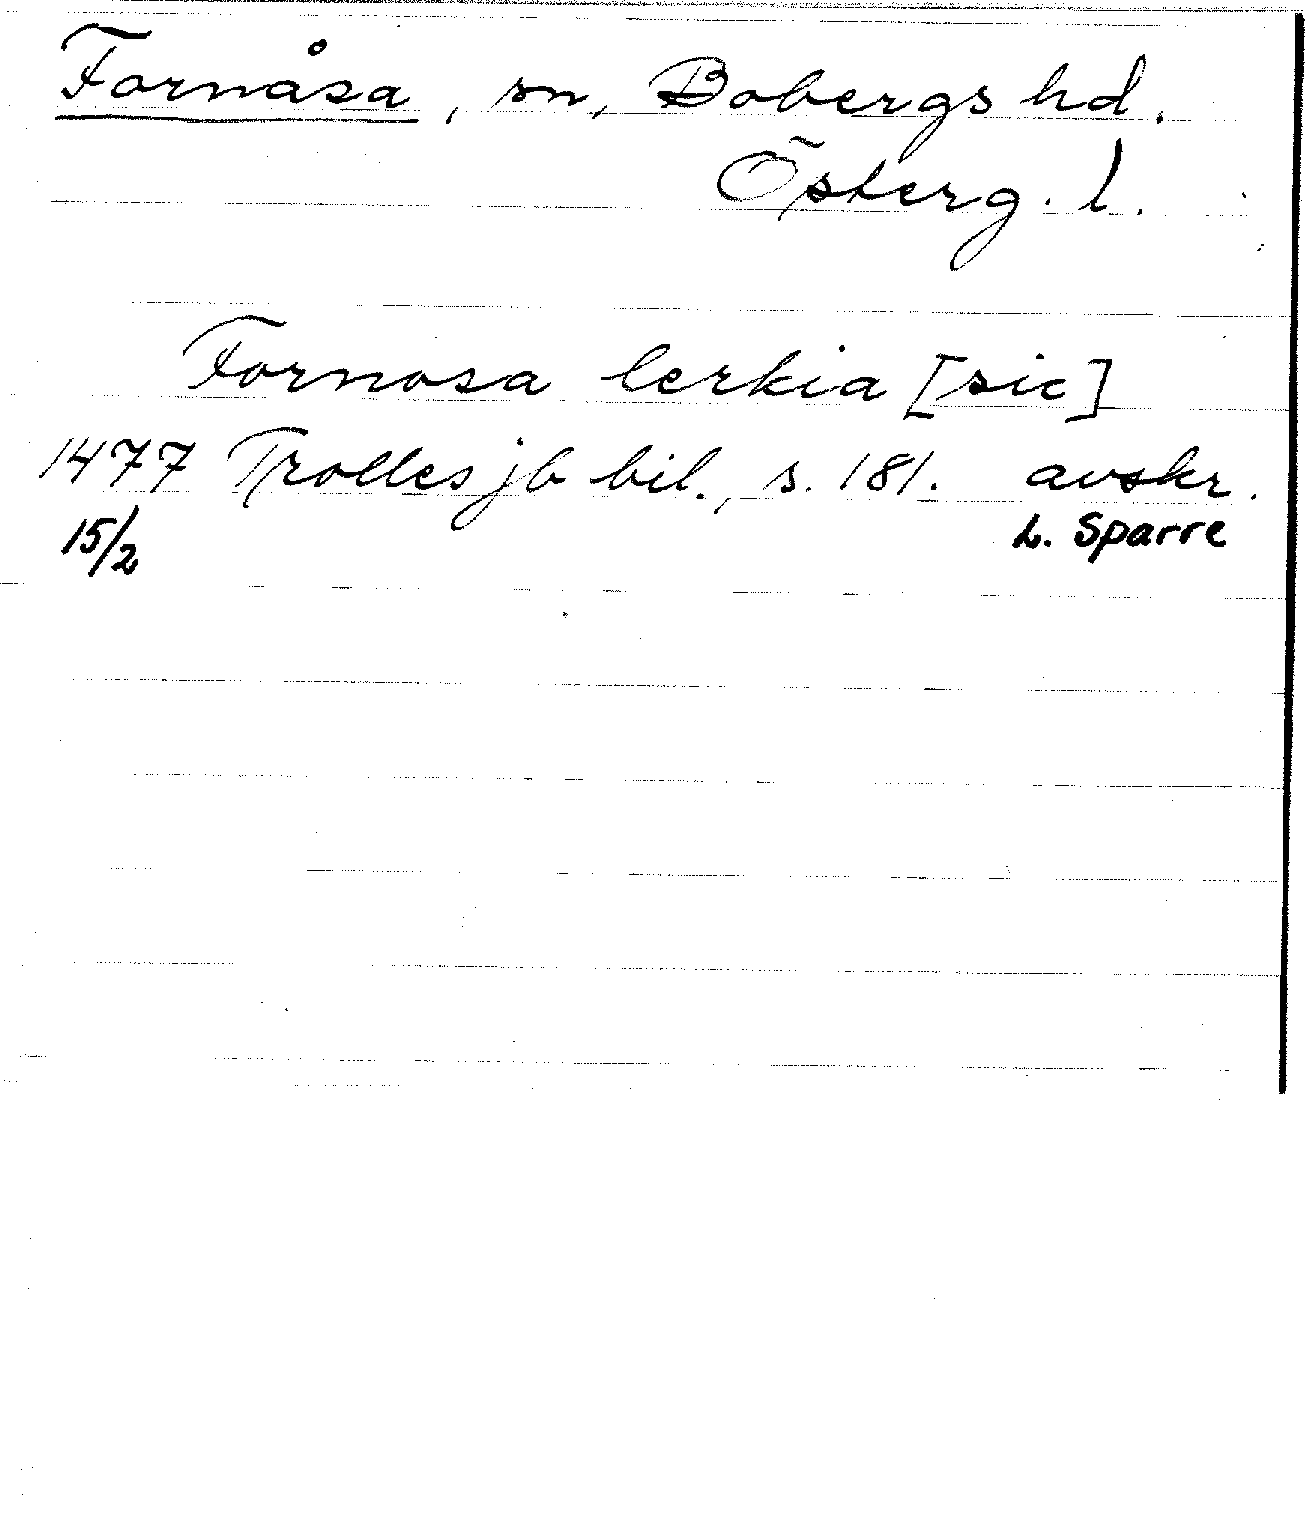 Fornåsa, sn, Bobergs hd.
Österg. l.
Fornosa lerkia [sic]
1477 Trolles jb bil., s. 181. avskr.
15/2 L. Sparre